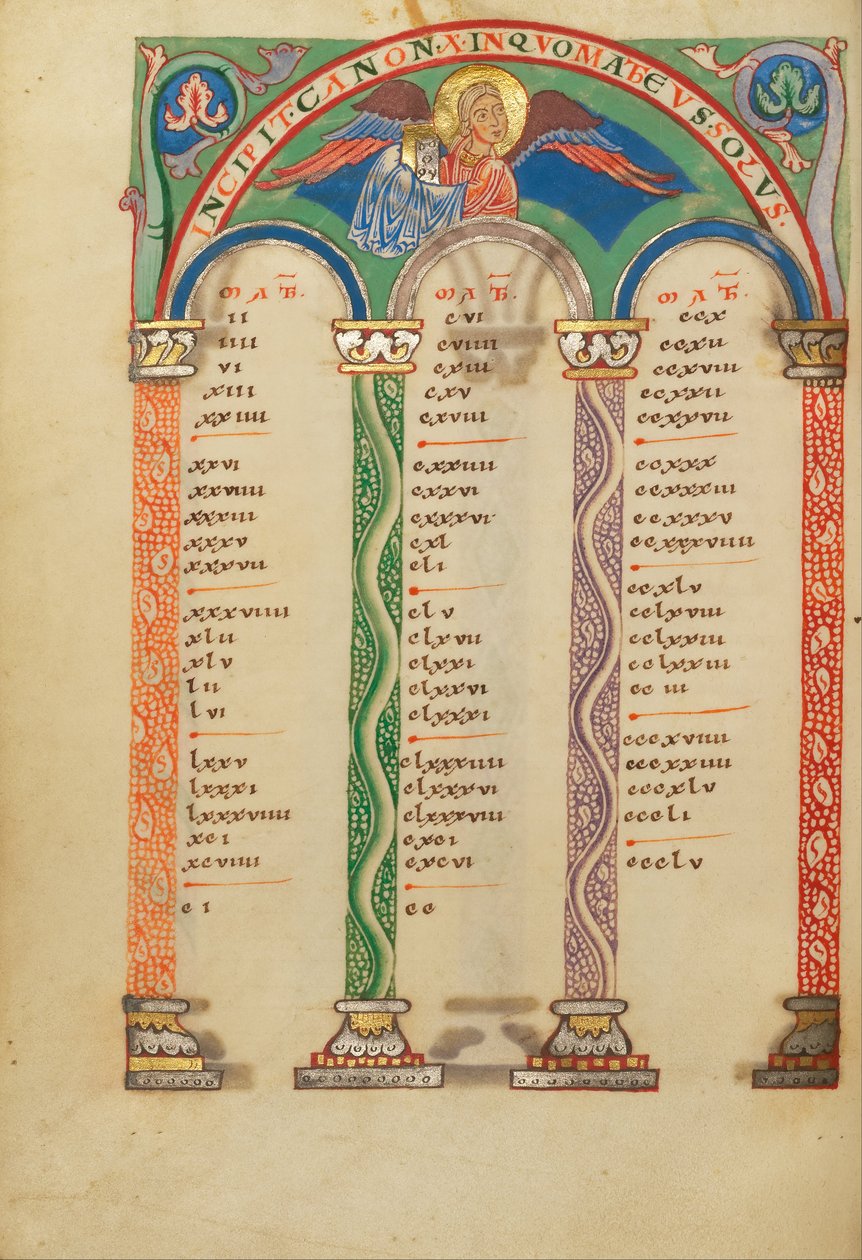 INCIPIT·CANON·X·INQVOMATHEVS·SOLVS·
MATH.
ii
iiii
vi
xiii
xxiiii
xxvi
xxviiii
xxxiii
xxxv
xxxvii
xxxviiii
xlii
xlv
lii
lvi
lxxv
lxxxi
lxxxviiii
xci
xcviiii
ci
MATH.
cvi
cviiii
cxiii
cxv
cxviii
cxxiiii
cxxvi
cxxxvi
cxl
cli
clv
clxvii
clxxi
clxxvi
clxxxi
clxxxiiii
clxxxvi
clxxxviii
cxci
cxcvi
cc
MATH.
ccx
ccxii
ccxviii
ccxxii
ccxxvii
ccxxx
ccxxxiii
ccxxxv
ccxxxviiii
ccxlv
cclxviii
cclxxiii
cclxxiii
cc iii
cccxviiii
cccxxiiii
cccxlv
cccli
ccclv